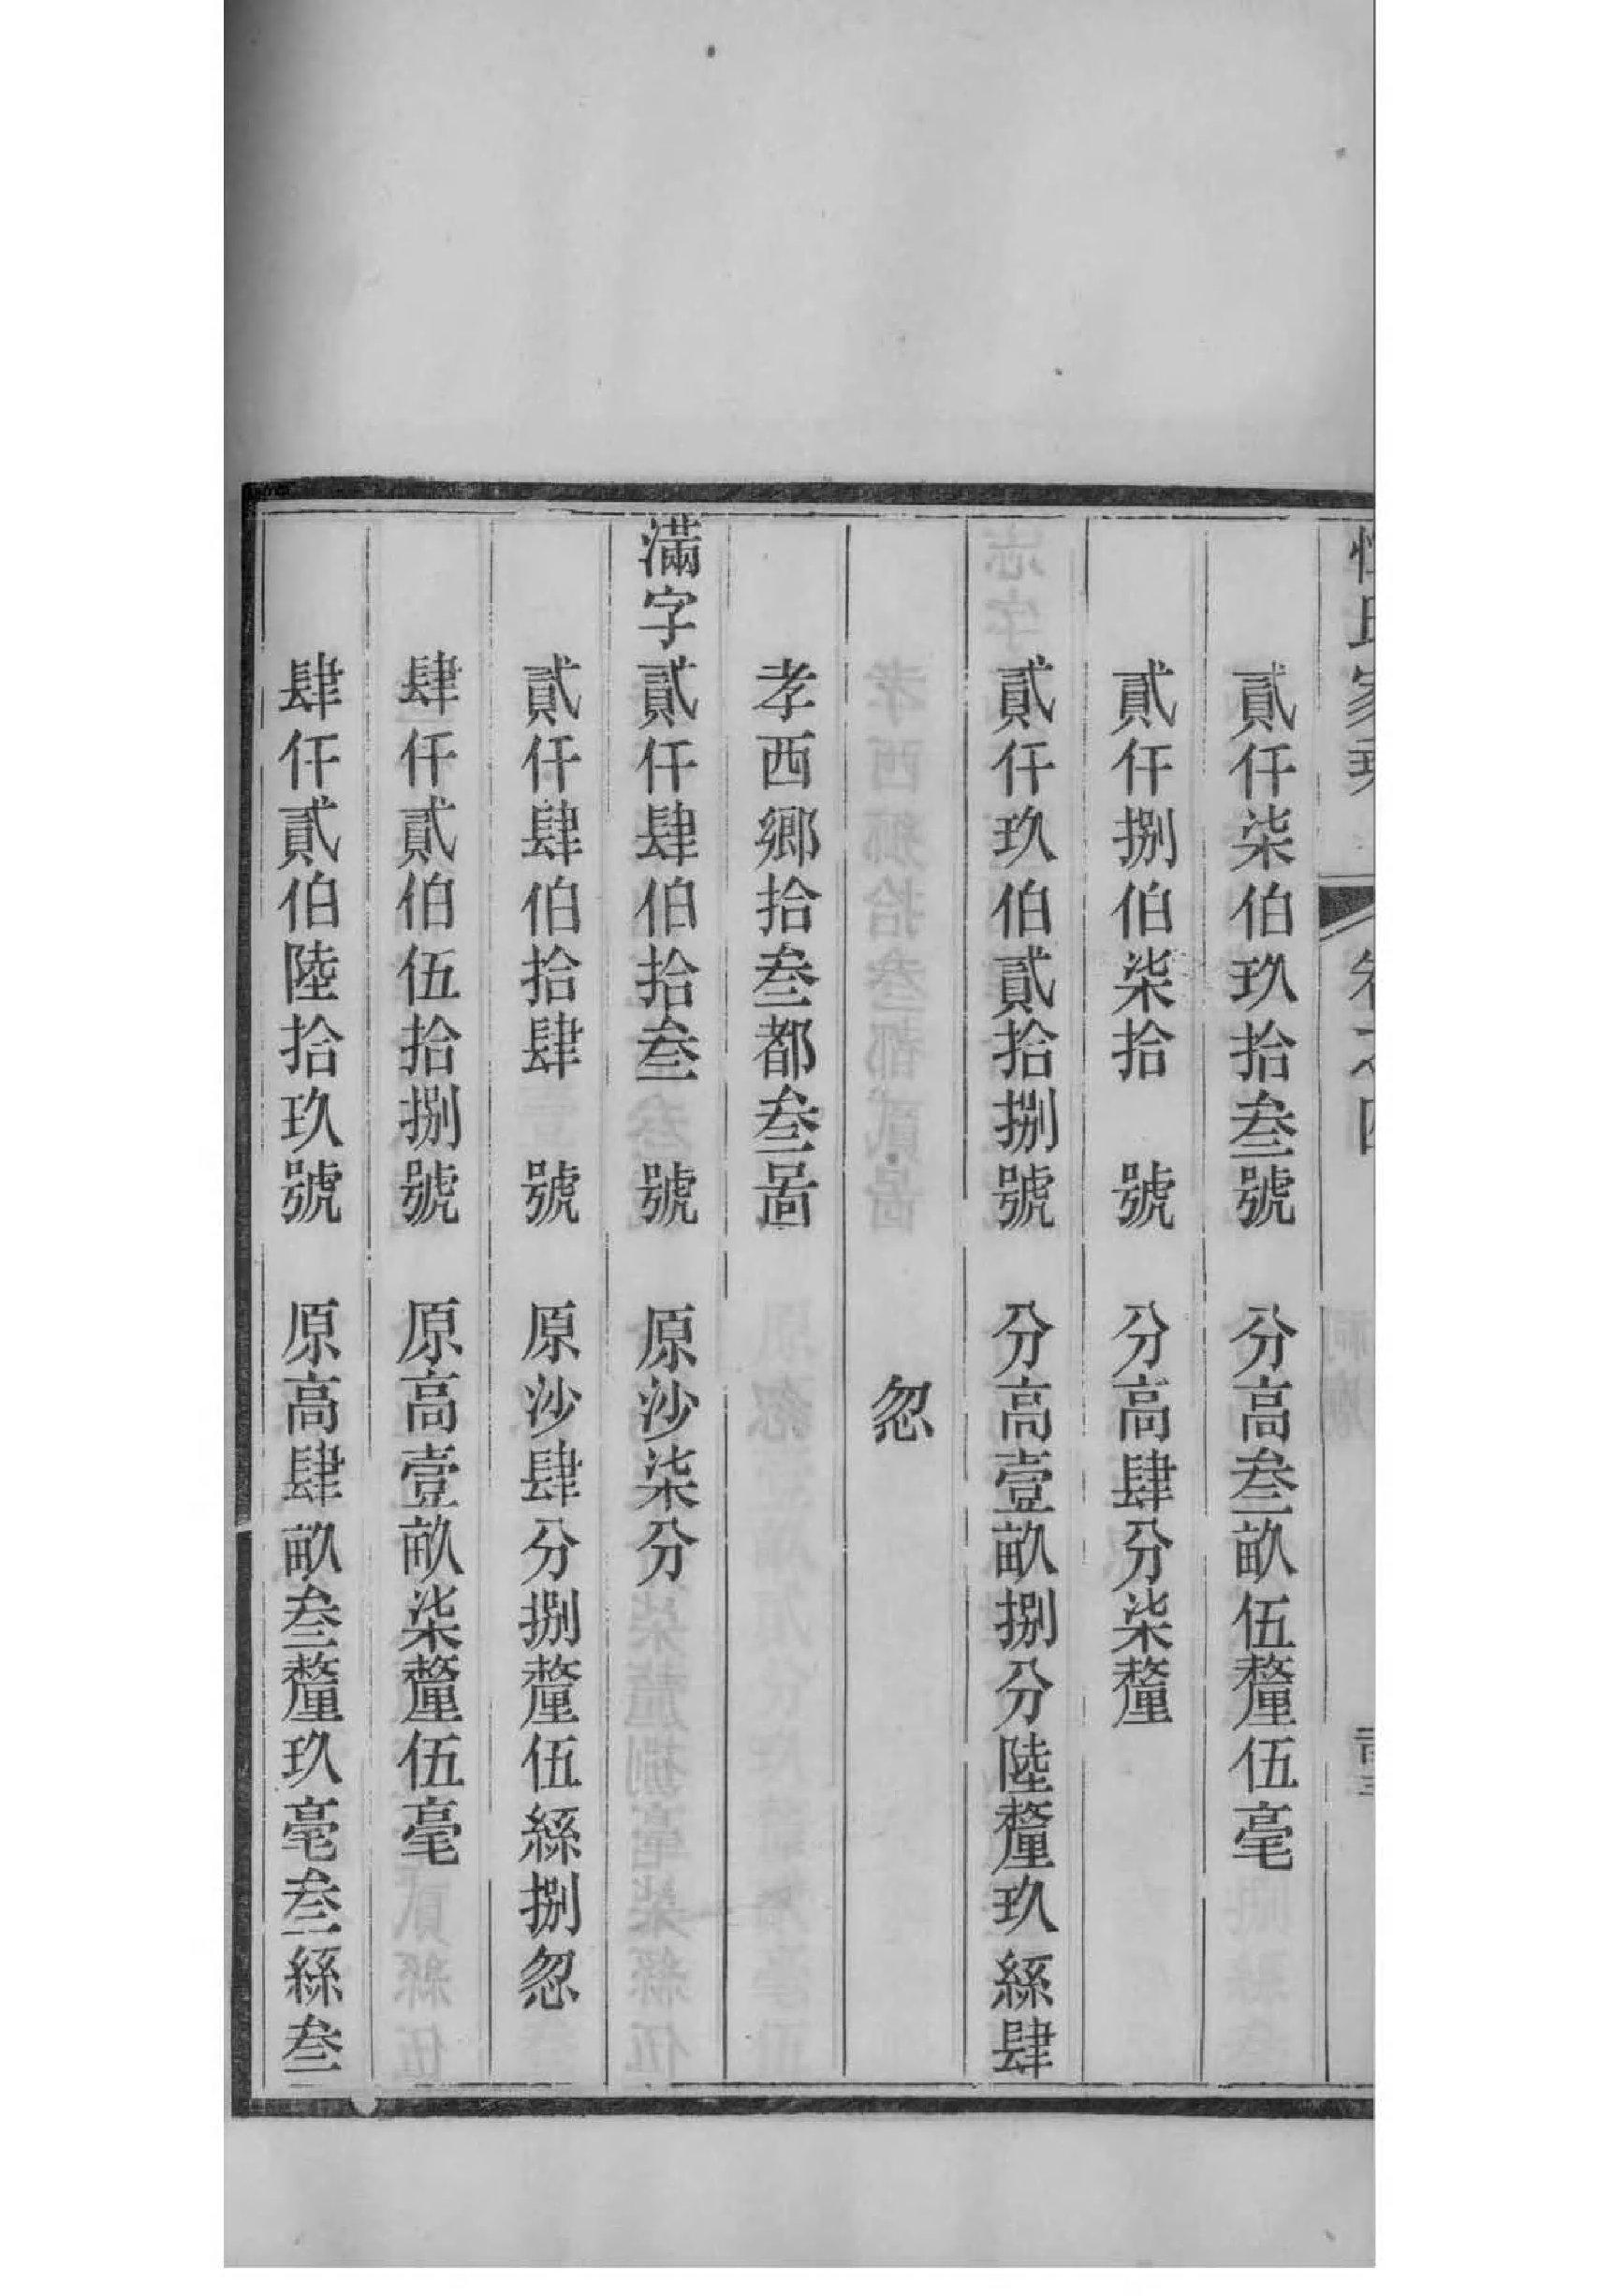 氏家乘 卷之四
貳仟柒伯玖拾叁號 分高叁畝伍釐伍毫
貳仟捌伯柒拾 號 分高肆分柒釐
貳仟玖伯貳拾捌號 分高壹畝捌分陸釐玖絲肆
忽
孝西鄉拾叁都叁啚
滿字貳仟肆伯拾叁 號 原沙柒分
貳仟肆伯拾肆 號 原沙肆分捌釐伍絲捌忽
肆仟貳伯伍拾捌號 原高壹畝柒釐伍毫
肆仟貳伯陸拾玖號 原高肆畝叁釐玖毫叁絲叁